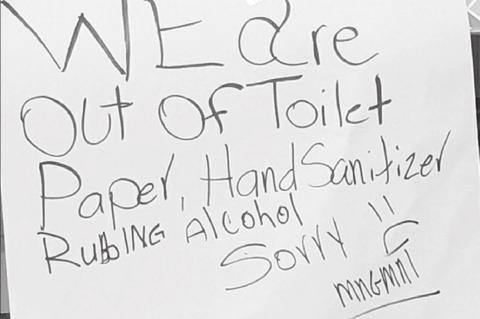 WE are
Out Of Toilet
Paper, Hand Sanitizer
Rubbing Alcohol
Sorry !!
MNGMNT